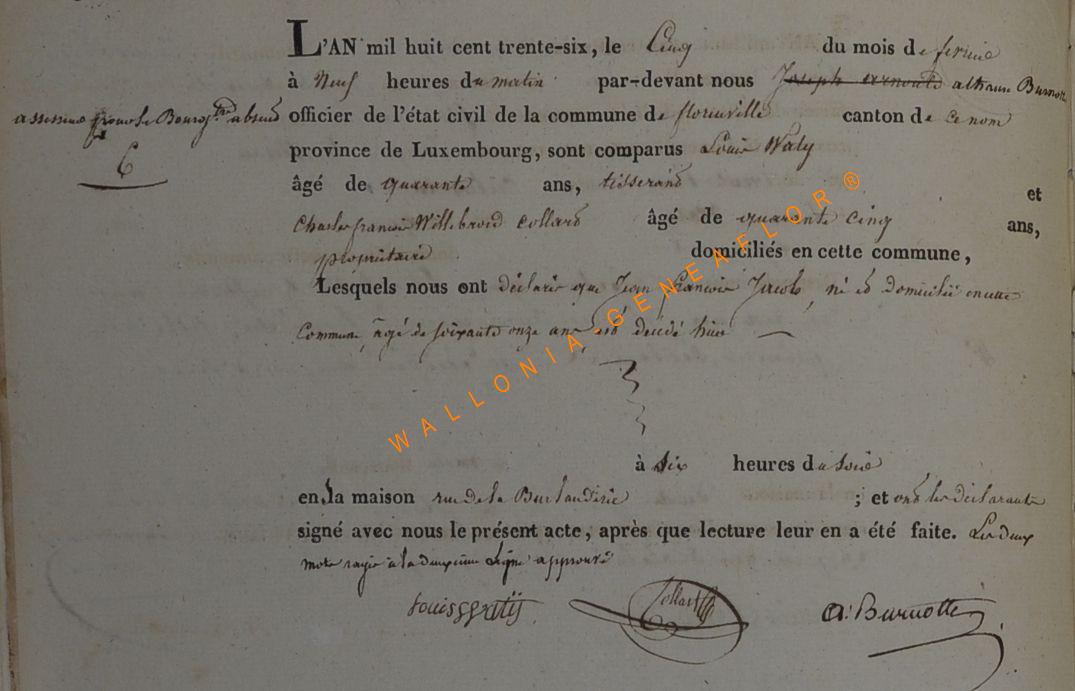 L'AN mil huit cent trente-six, le Cinq du mois de fevrier
à Neuf heures du matin par-devant nous Joseph arnould Burnotte
assesseur pour le Bourgtre absent officier de l'état civil de la commune de florenville canton de ce nom
6
province de Luxembourg, sont comparus Louis Waty
âgé de quarante ans, tisserand et
Charles françois Willebrord Collard âgé de quarante cinq ans,
propriétaire domiciliés en cette commune,
Lesquels nous ont déclaré que Jean françois Jacob, né et domicilié en cette
Commune, agé de soixante onze ans est décédé hier
à six heures du soir
en la maison rue de la ; et ont les déclarants
signé avec nous le présent acte, après que lecture leur en a été faite. Les deux
mots rayés à la deuxieme ligne approuvé
Collard A. Burnotte
WALLONIA GENEAFLOR ®